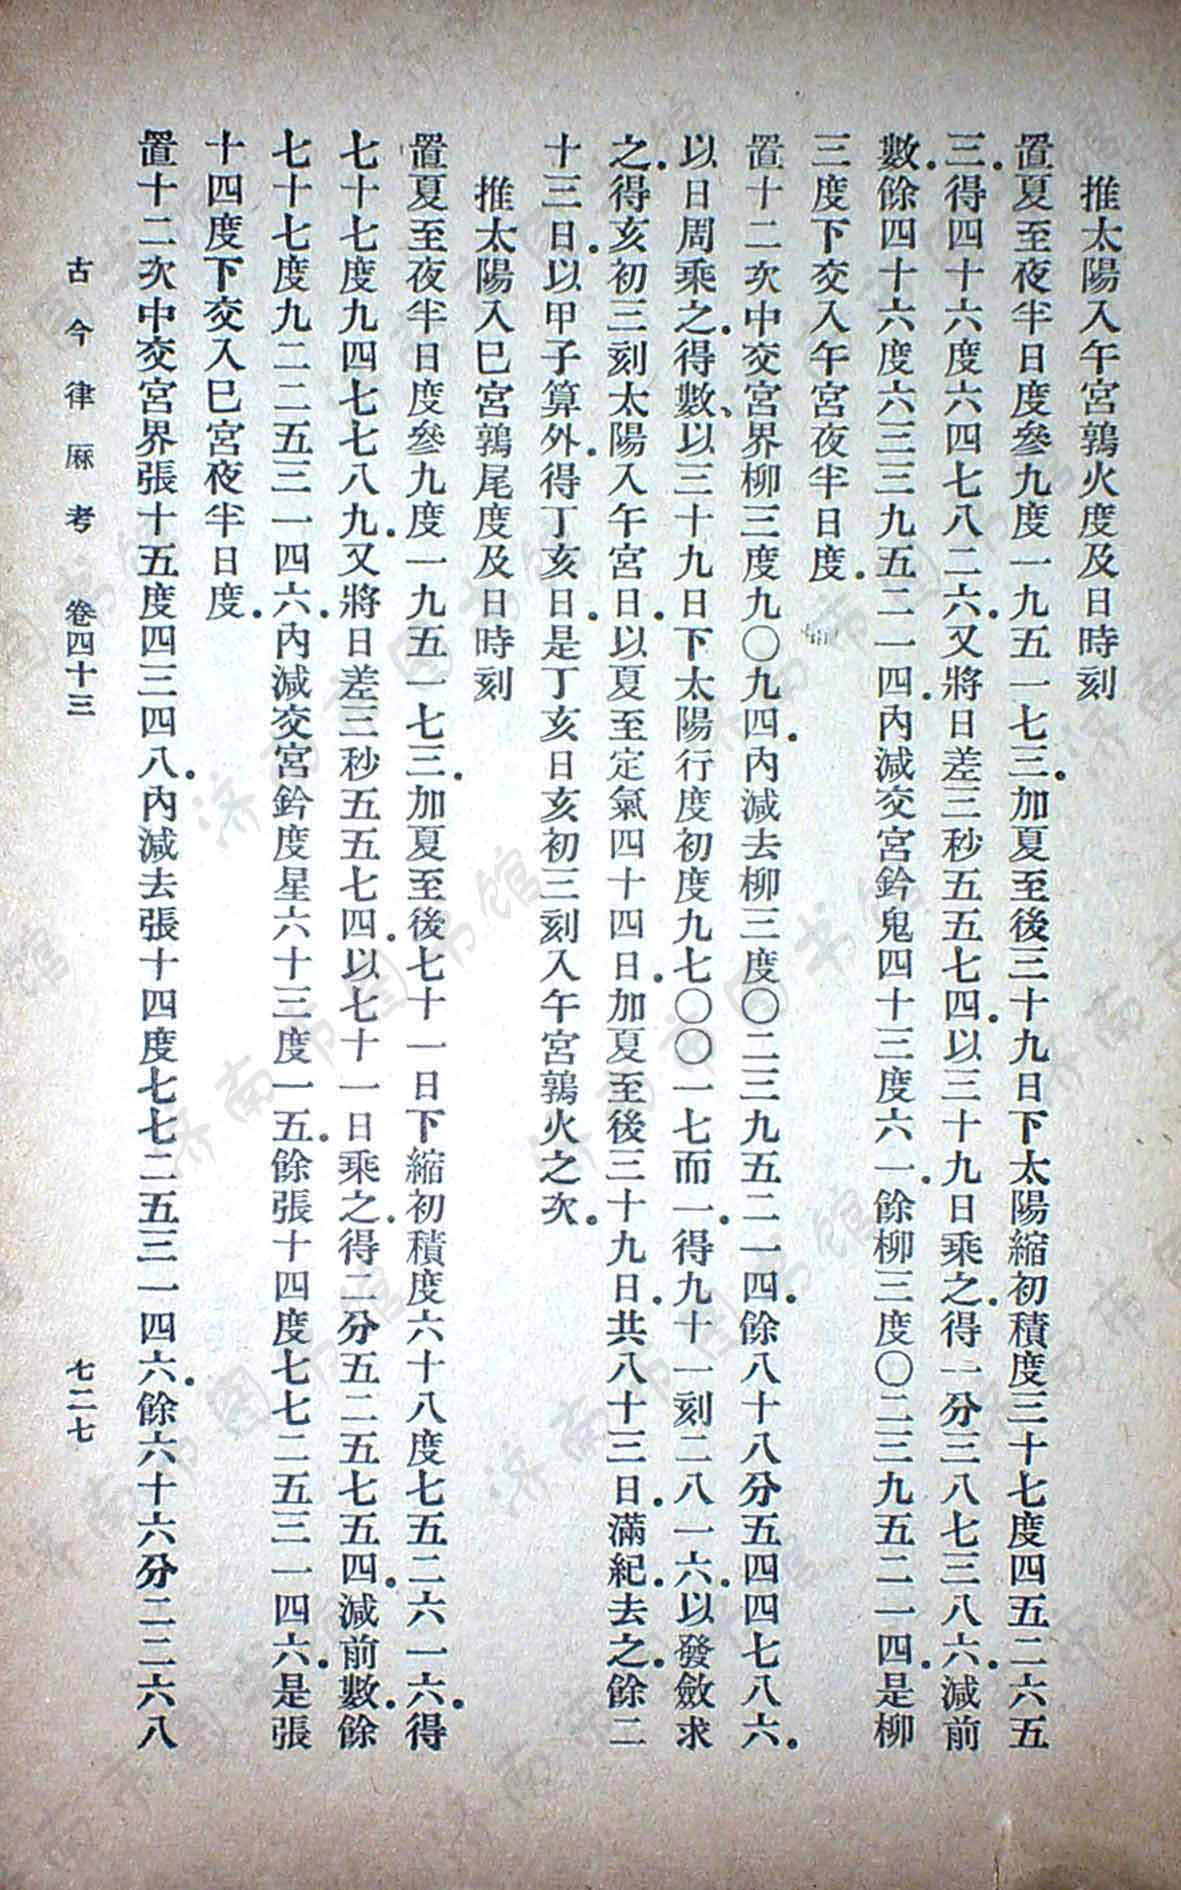 推太陽入午宮鶉火度及日時刻
置夏至夜半日度參九度一九五一七三。加夏至後三十九日下太陽縮初積度三十七度四五二六五
三。得四十六度六四七八二六。又將日差三秒五五七四。以三十九日乘之。得一分三八七三八六。減前
數。餘四十六度六三三九五二一四。內減交宮鈐鬼四十三度六一。餘柳三度〇二三九五二一四。是柳
三度下交入午宮夜半日度。
置十二次中交宮界柳三度九〇九四。內減去柳三度〇二三九五二一四。餘八十八分五四四七八六。
以日周乘之。得數、以三十九日下太陽行度初度九七〇〇一七而一。得九十一刻二八一六。以發斂求
之。得亥初三刻太陽入午宮日。以夏至定氣四十四日。加夏至後三十九日。共八十三日。滿紀去之。餘二
十三日。以甲子算外。得丁亥日。是丁亥日亥初三刻入午宮鶉火之次。
推太陽入巳宮鶉尾度及日時刻
置夏至夜半日度參九度一九五一七三。加夏至後七十一日下縮初積度六十八度七五二六一六。得
七十七度九四七七八九。又將日差三秒五五七四。以七十一日乘之。得二分五二五七五四。減前數。餘
七十七度九二二五三一四六。內減交宮鈐度星六十三度一五。餘張十四度七七二五三一四六。是張
十四度下交入巳宮夜半日度。
置十二次中交宮界張十五度四三四八。內減去張十四度七七二五三一四六。餘六十六分二二六八
古今律厤考 卷四十三 七二七